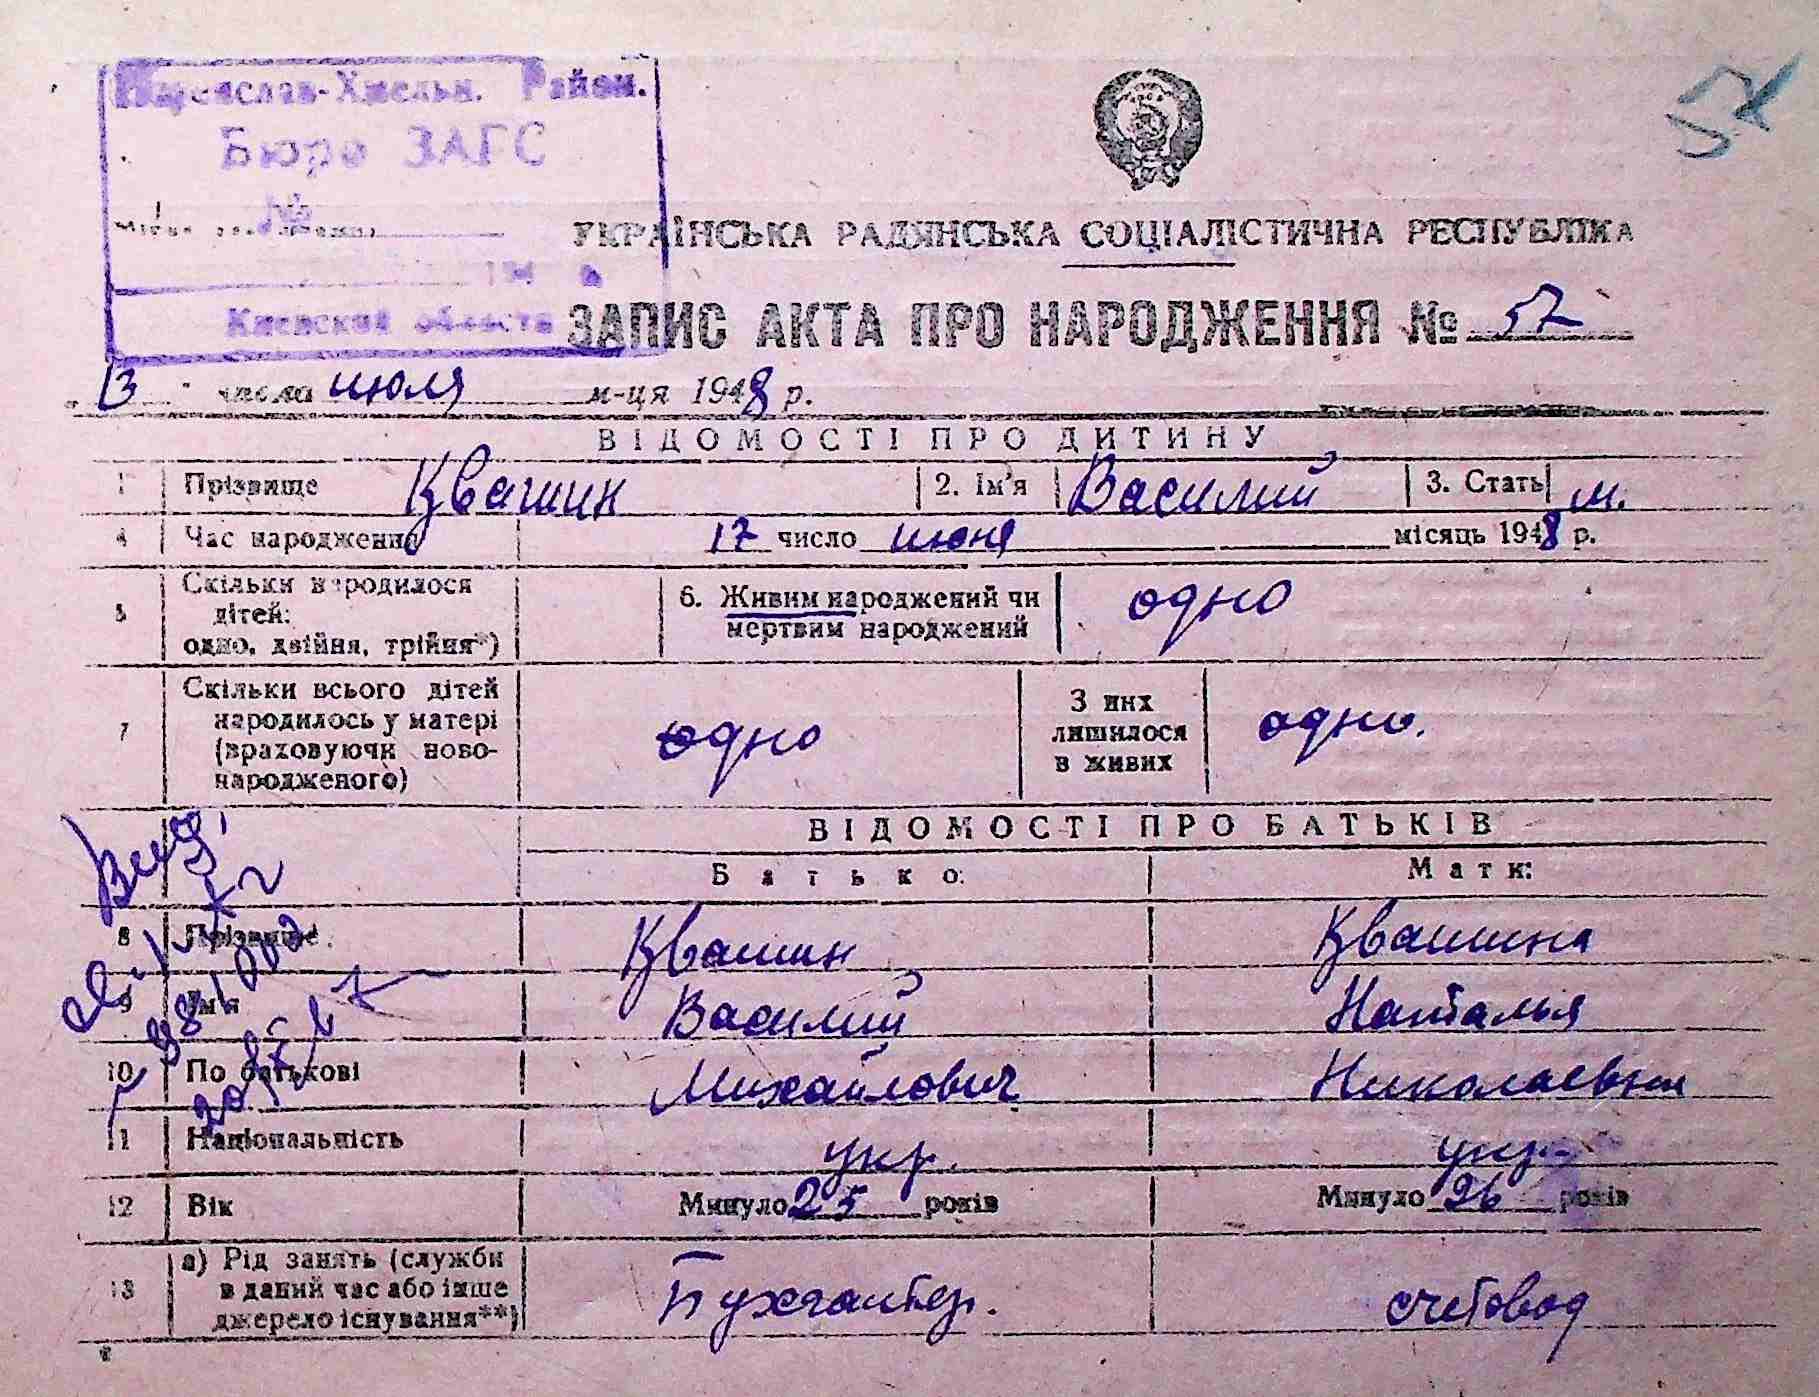 57
Переяслав-Хмельн. Район.
Бюро ЗАГС
№
194 в
Киевский области
УКРАЇНСЬКА РАДЯНСЬКА СОЦІАЛІСТИЧНА РЕСПУБЛІКА
ЗАПИС АКТА ПРО НАРОДЖЕННЯ № 57
13 числа июля м-ця 1948 р.
ВІДОМОСТІ ПРО ДИТИНУ
1 Прізвище Квашин 2. Ім'я Василий 3. Стать м.
4 Час народження 17 число июня місяць 1948 р.
5 Скільки народилося дітей: одно, двійня, трійня*) 6. Живим народжений чи мертвим народжений одно
7 Скільки всього дітей народилось у матері (враховуючи новонародженого) одно З них лишилося в живих одно.
ВІДОМОСТІ ПРО БАТЬКІВ
Батько: Мати:
8 Прізвище Квашин Квашина
9 Ім'я Василий Наталья
10 По батькові Михайлович Николаевна
11 Національність укр. укр.
12 Вік Минуло 25 років Минуло 26 років
13 а) Рід занять (служби в даний час або інше джерело існування**) Бухгалтер. счетовод